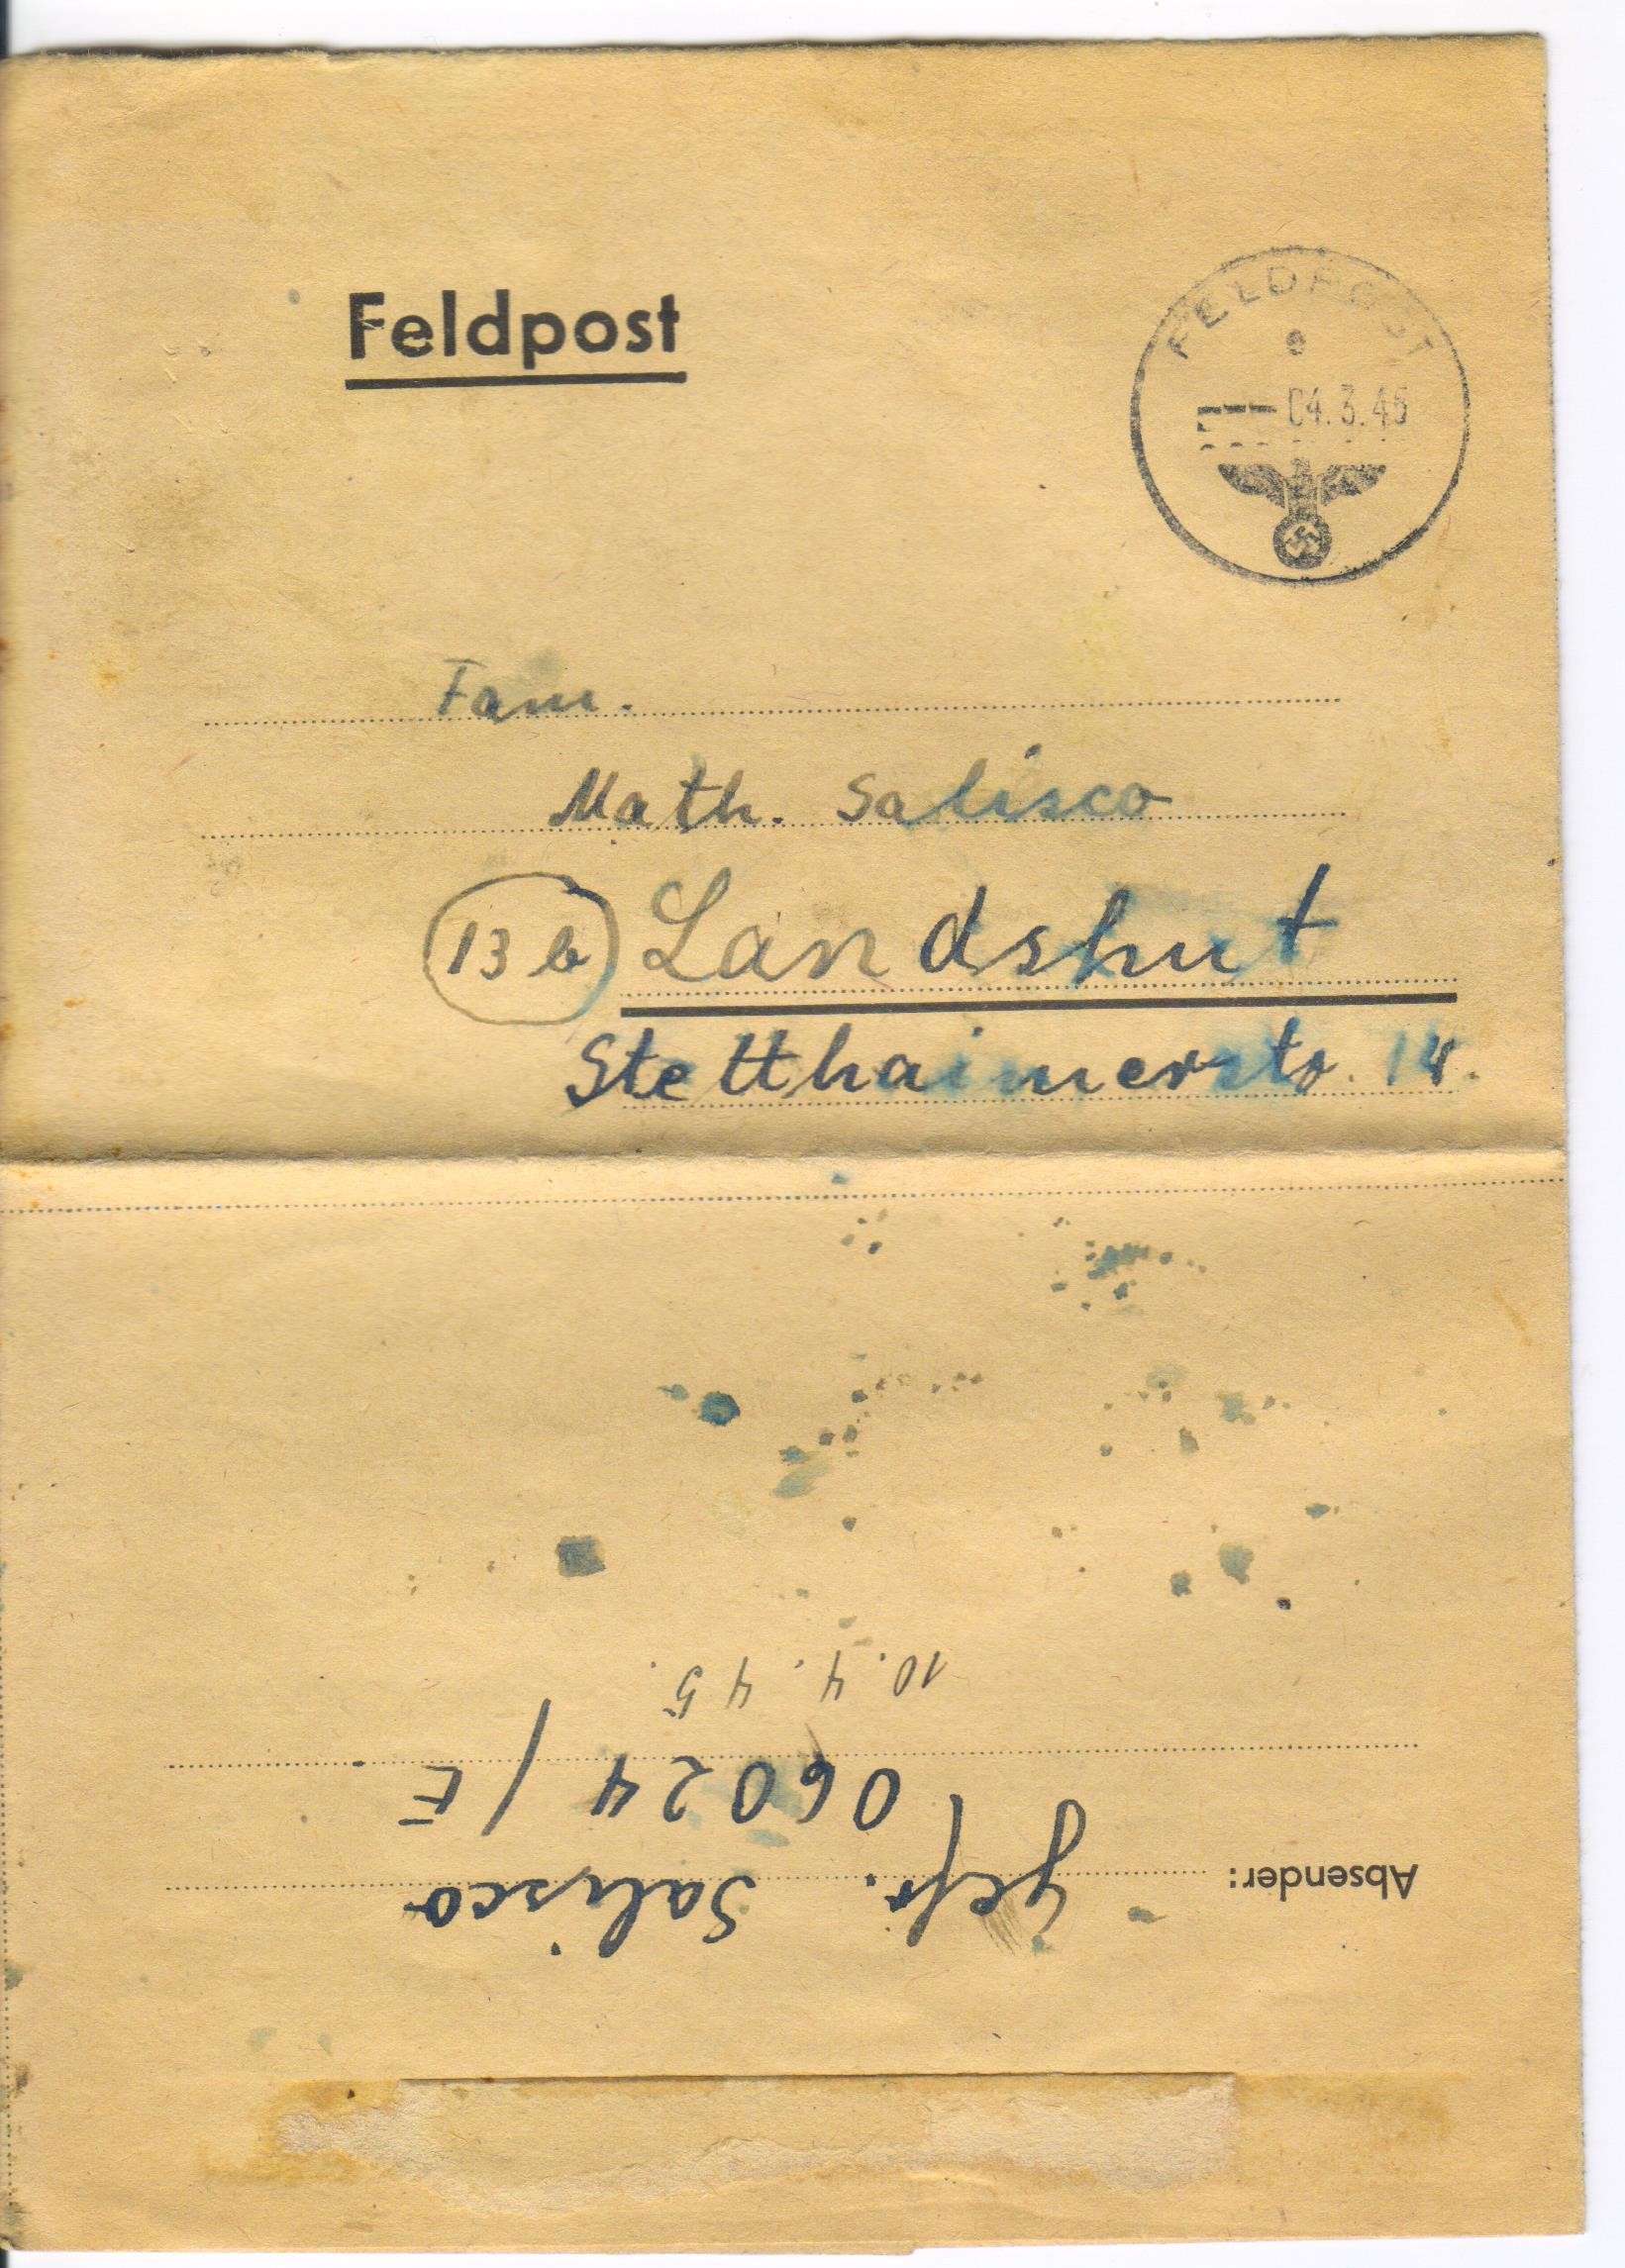 Feldpost
FELDPOST
e
04.3.45
Fam.
Math. Salisco
13b Landshut
Stetthaimerstr. 14.
Absender: Gefr. Salisco
06024/E
10.4.45.